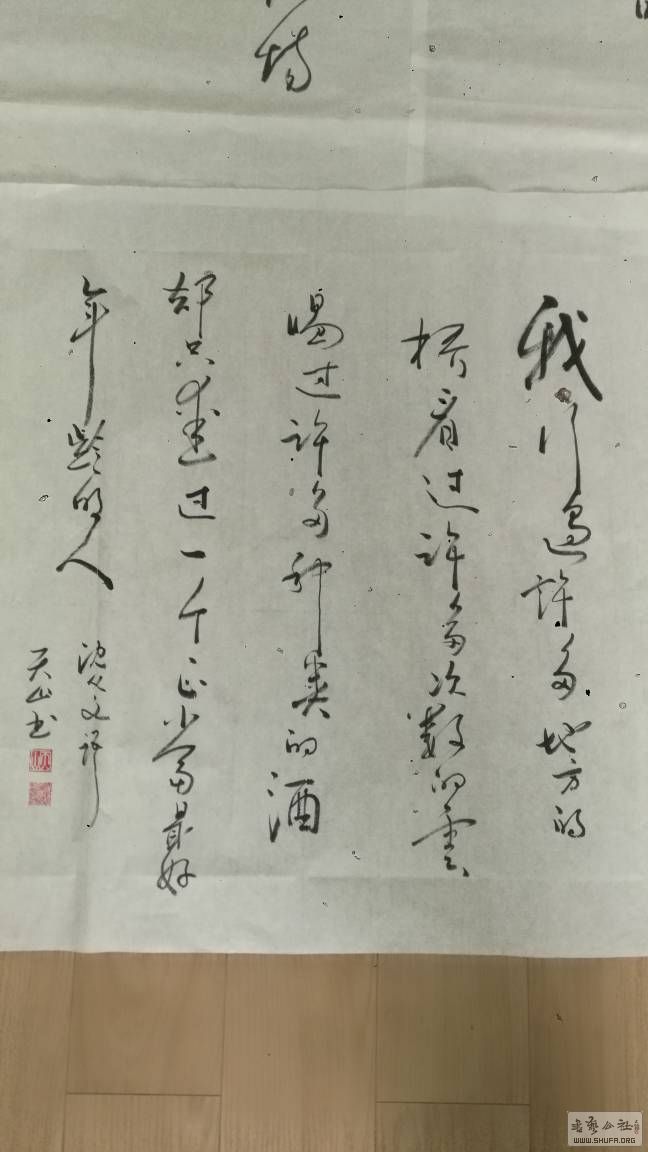 我行過许多地方的
桥看过许多次數的雲
喝过许多种类的酒
却只爱过一个正当最好
年龄的人
沈从文语
天山书
书艺公社
WWW.SHUFA.ORG